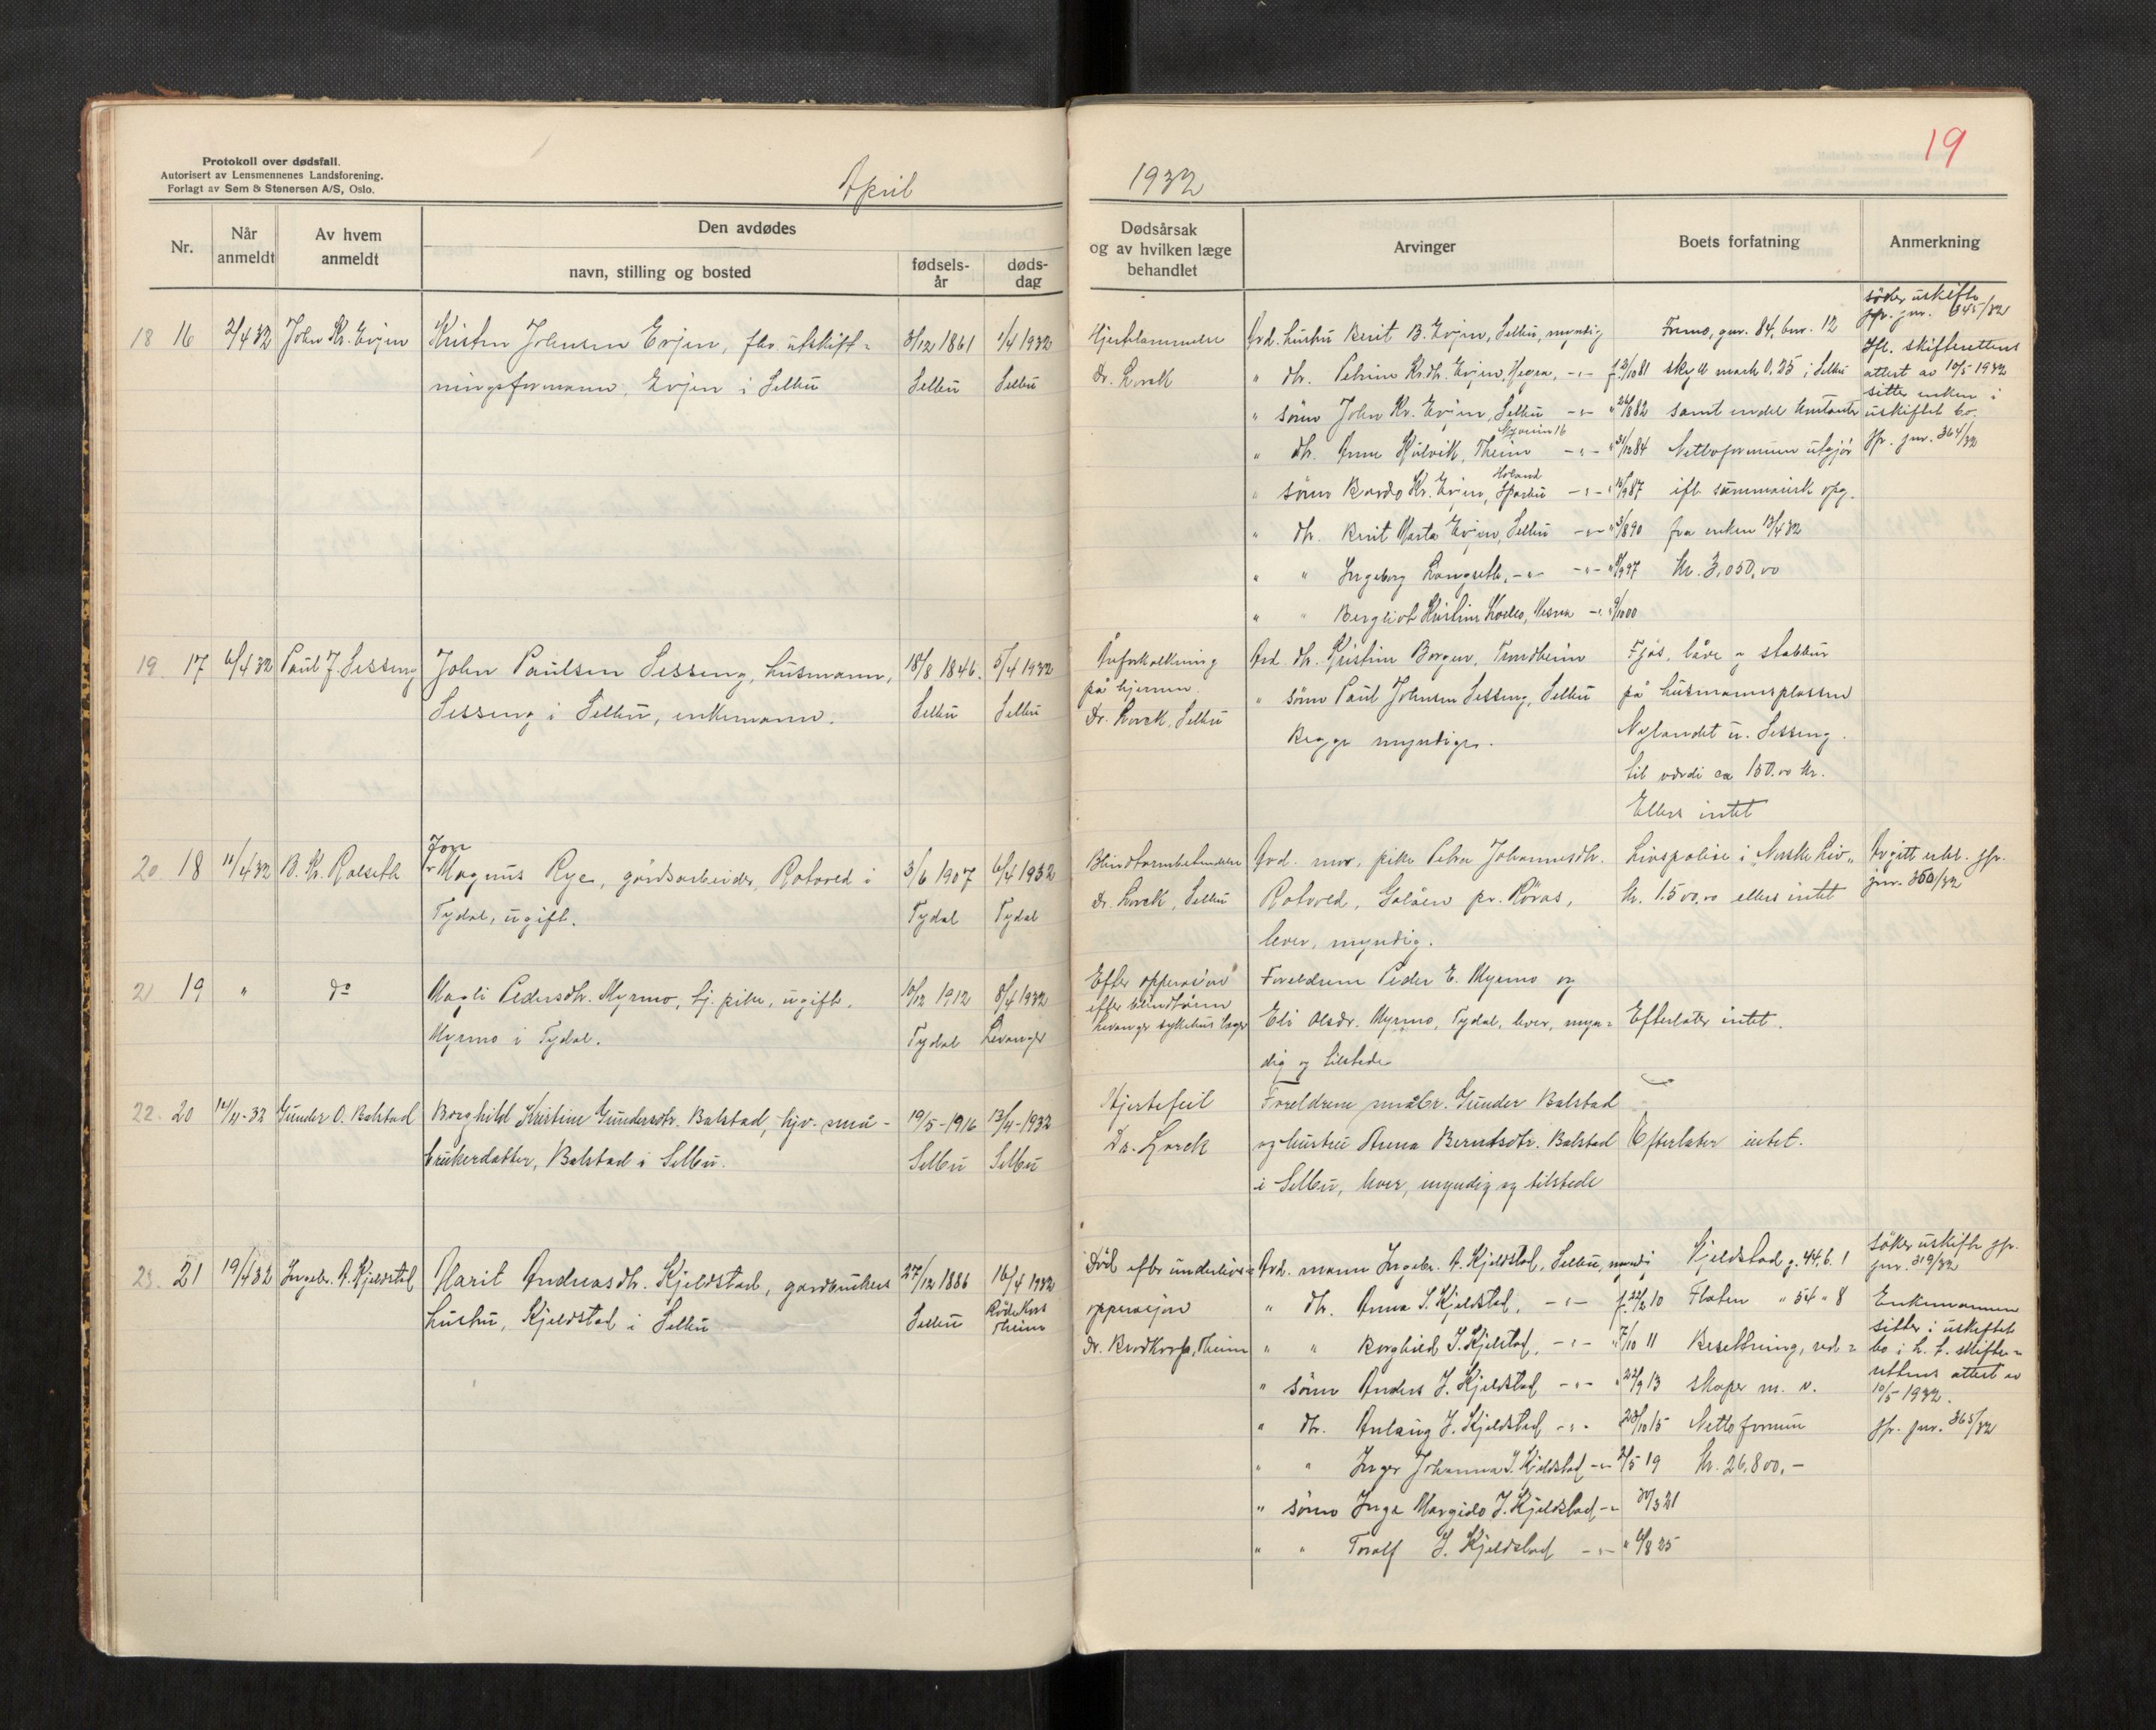 Protokoll over dødsfall.
Autorisert av Lensmennenes Landsforening.
Forlagt av Sem & Stenersen A/S, Oslo.
April
Nr.
Når anmeldt
Av hvem anmeldt
Den avdødes
navn, stilling og bosted
fødsels-år
døds-dag
18 16 2/4 32 John Kr. Evjen Kristen Johnsen Evjen, fhv. utskift= 3/12 1861 1/4 1932
ningsformann, Evjen i Selbu Selbu Selbu
19. 17 6/4 32 Paul J. Sesseng John Paulsen Sesseng, husmann, 18/8 1846. 5/4 1932
Sesseng i Selbu, enkemann. Selbu Selbu
Jon
20. 18 11/4 32 B. Kr. Rolseth Magnus Rye, gårdsarbeider, Rotvold i 3/6 1907 6/4 1932
Tydal, ugift. Tydal Tydal
21 19 " do Magli Pedersdtr. Myrmo, tj. pike, ugift. 10/12 1912 8/4 1932
Myrmo i Tydal. Tydal Levanger
22. 20 14/4-32 Gunder O. Balstad Borghild Kristine Gundersdtr. Balstad, hjv. små-19/5-1916 13/4-1932
brukerdatter, Balstad i Selbu. Selbu Selbu
23. 21 19/4 32 Ingebr. A. Kjeldstad Marit Andreasdtr. Kjeldstad, gardbrukers 27/12 1886 16/4 1932
hustru, Kjeldstad i Selbu Selbu Röde Kors
Theim
19
1932
Dødsårsak
og av hvilken læge
behandlet
Arvinger
Boets forfatning
Anmerkning
Hjertelammelse
Dr. Lorck
Avd. hustru Berit B. Evjen, Selbu, myndig
" dtr. Petrine Kr.dtr. Evjen, Hegra, -"-
" sönn John Kr. Evjen, Selbu -"-
" dtr. Anne Kulvik, Theim -"- " 31/12 84
" sönn Bardo Kr. Evjen, Sparbu -"-
" dtr. Berit Marta Evjen, Selbu -"- " 3/8 90
" " Ingeborg Langseth, -"- -"-
" " Bergliot Kristine
Fremo, gnr. 84, bnr. 12
skyld mark 0.25 i Selbu
samt endel kontanter
Nettoformuen utgjör
ifl. summarisk opg.
fra enken 13/4 32
kr. 3,050,00
söker uskifte
jfr. jnr. 345/32
Ifl. skifterettens
attest av 10/5 1932
sitter enken i
uskiftet bo.
Jfr. jnr. 364/32
Åreforkalkning
på hjernen.
Dr. Lorck, Selbu
Avd. dtr. Kristine Borgen, Trondheim
" sönn Paul Johnsen Sesseng, Selbu
Begge myndige.
Fjös, låve og stabbur
på husmannsplassen
Nylandet u. Sesseng.
til verdi ca 150.00 kr.
Ellers intet
Blindtarmbetendelse
Dr. Lorck, Selbu
Avd. mor, pike Petra Johannesdtr.
Rotvold, Galåen pr. Röros,
lever, myndig.
Livspolise i "Norske Liv"
kr. 1.500,00 ellers intet
Avgitt erkl. jfr.
jnr. 350/32
Efter opperasjon
efter blindtarm
Levanger sykehus læge
Foreldrene Peder E. Myrmo og
Eli Olsdr. Myrmo, Tydal, lever, myn=
dig og tilstede
Efterlater intet.
Hjertefeil
Dr. Lorck
Foreldrene småbr. Gunder Balstad
og hustru Anna Berntsdtr. Balstad
i Selbu, lever, myndig og tilstede
Efterlater intet.
Död efter underlivs=
opperasjon
Dr. Brodtkorb, Theim
Avd. mann Ingebr. A. Kjeldstad, Selbu, myndig
" dtr. Anna I. Kjeldstad, -"- f. 22/2 10
" " Borghild I. Kjeldstad, -"- " 7/10 11
" sönn Anders I. Kjeldstad -"- " 22/9 13
" dtr. Anlaug I. Kjeldstad -"- 28/10 15
" " Inger Johanna I. Kjeldstad -"- 2/5 19
" sönn Inge Margido I. Kjeldstad -"- 30/3 21
" " Toralf I. Kjeldstad -"- " 6/8 25
Kjeldstad g. 44, b. 1
Flaten " 54 " 8
Besetning, red=
skaper m. v.
Netto formue
kr. 26,800,-
söker uskifte jfr.
jnr. 319/32
Enkemannen
sitter i uskiftet
bo i h. t. skifte=
rettens attest av
10/5 1932.
Jfr. jnr. 365/32